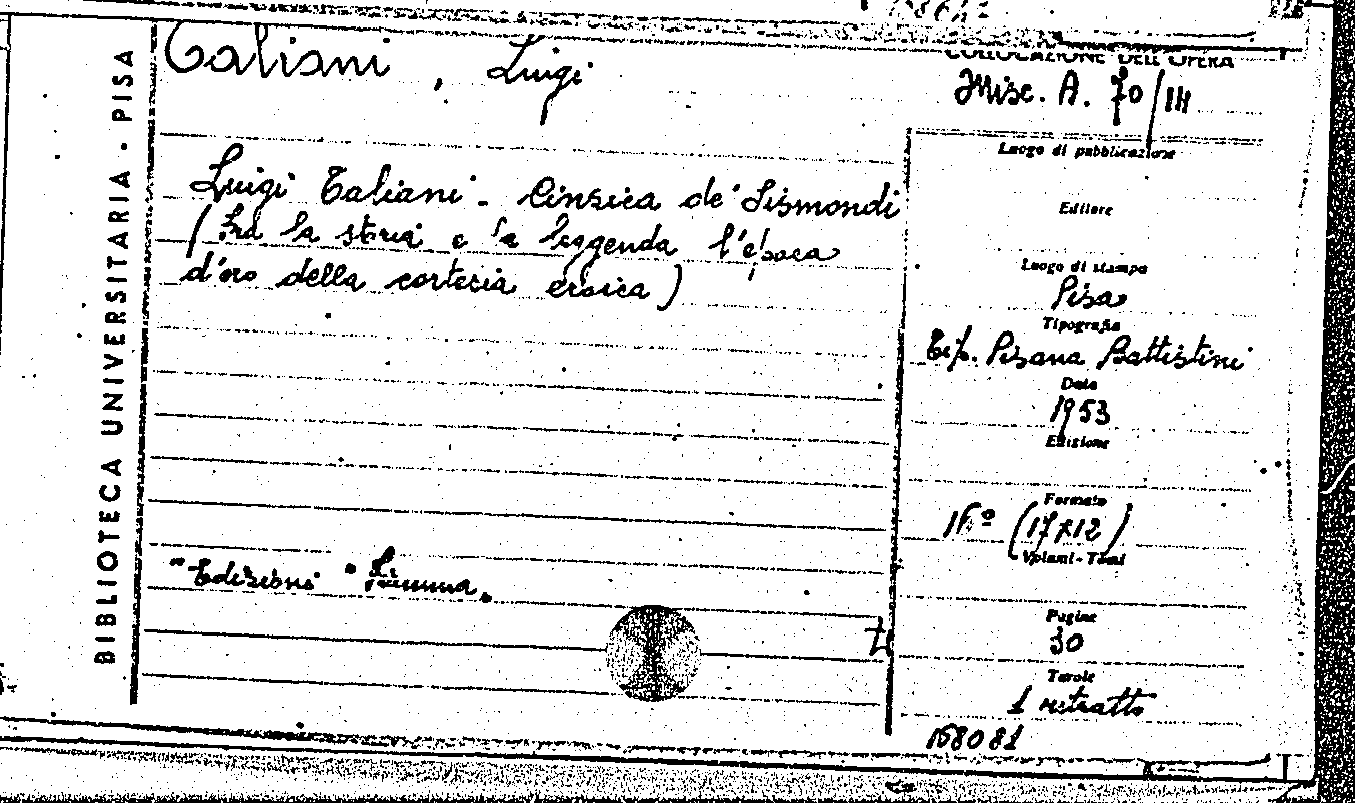 BIBLIOTECA UNIVERSITARIA · PISA
Taliani, Luigi
COLLOCAZIONE DELL'OPERA
Misc. A. 70/14
Luigi Taliani - Cinzica de' Sismondi
(Fra la storia e la leggenda l'epoca
d'oro della cortesia eroica)
"Edizioni"
Luogo di pubblicazione
Editore
Luogo di stampa
Pisa
Tipografia
Tip. Pisana Battistini
Data
1953
Edizione
Formato
16º (17x12)
Volumi-Tomi
Pagine
30
Tavole
1 ritratto
168081